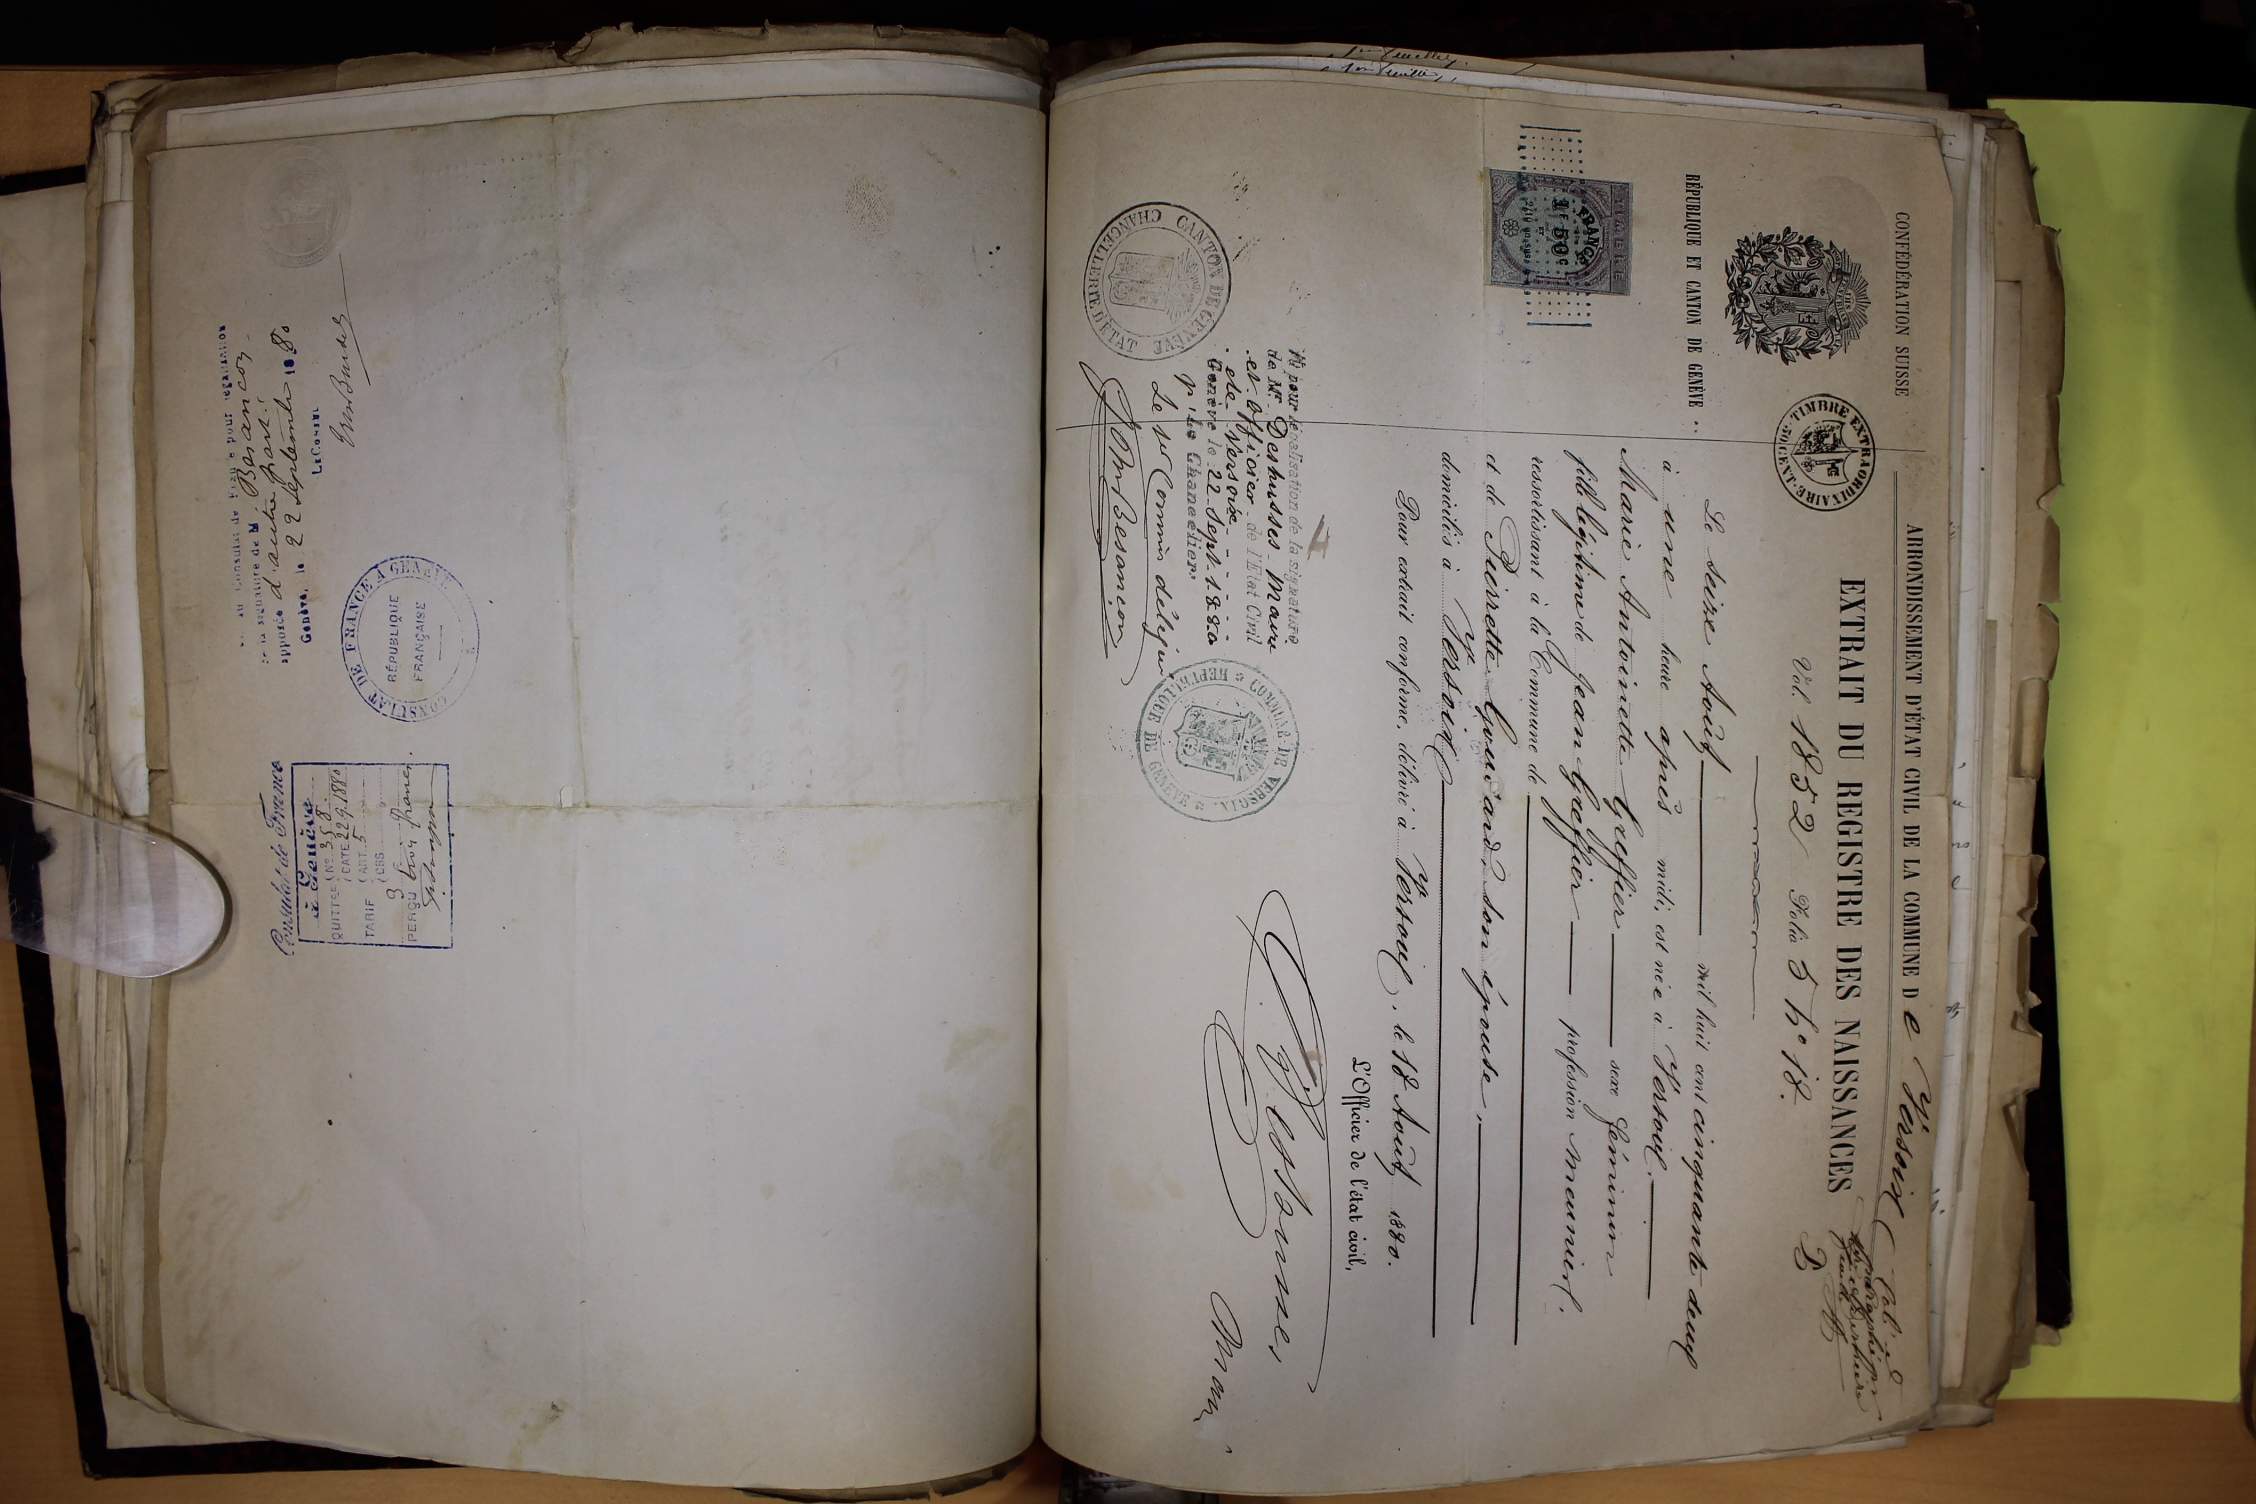 CONFÉDÉRATION SUISSE
RÉPUBLIQUE ET CANTON DE GENÈVE
TIMBRE EXTRAORDINAIRE
50 CENT.
ARRONDISSEMENT D'ÉTAT CIVIL DE LA COMMUNE De Versoix
EXTRAIT DU REGISTRE DES NAISSANCES
Vol. 1852 Folio 5 No 18.
Le seize Août mil huit cent cinquante deux
à une heure après midi, est née à Versoix.
Marie Antoinette Greffier sexe féminin
fille légitime de Jean Greffier profession meunier.
ressortissant à la Commune de
et de Pierrette Gouvard son épouse,
domiciliés à Versoix
Pour extrait conforme, délivré à Versoix, le 18 Août 1880.
L'Officier de l'état civil,
Deshusses, Maire
FRANCS
1F 50C
Vu pour légalisation de la signature
de Mr Deshusses Maire
et Officier de l'Etat Civil
de Versoix
Genève le 22 Sept. 1880
Pr Le Chancelier:
Le 1er Commis délégué
J. Mc Besançon
CANTON DE GENÈVE
CHANCELLERIE D'ÉTAT
COMMUNE DE VERSOIX
RÉPUBLIQUE DE GENÈVE
au Consulat de France pour légalisation
de la signature de M. Besançon
apposée d'autre part.
Genève, le 22 Septembre 1880
Le Consul
CONSULAT DE FRANCE A GENÈVE
RÉPUBLIQUE
FRANÇAISE
Consulat de France
à Genève
QUITTCE No 358.
DATE 22.9.1880
TARIF ART. 5
OBS
PERÇU trois francs